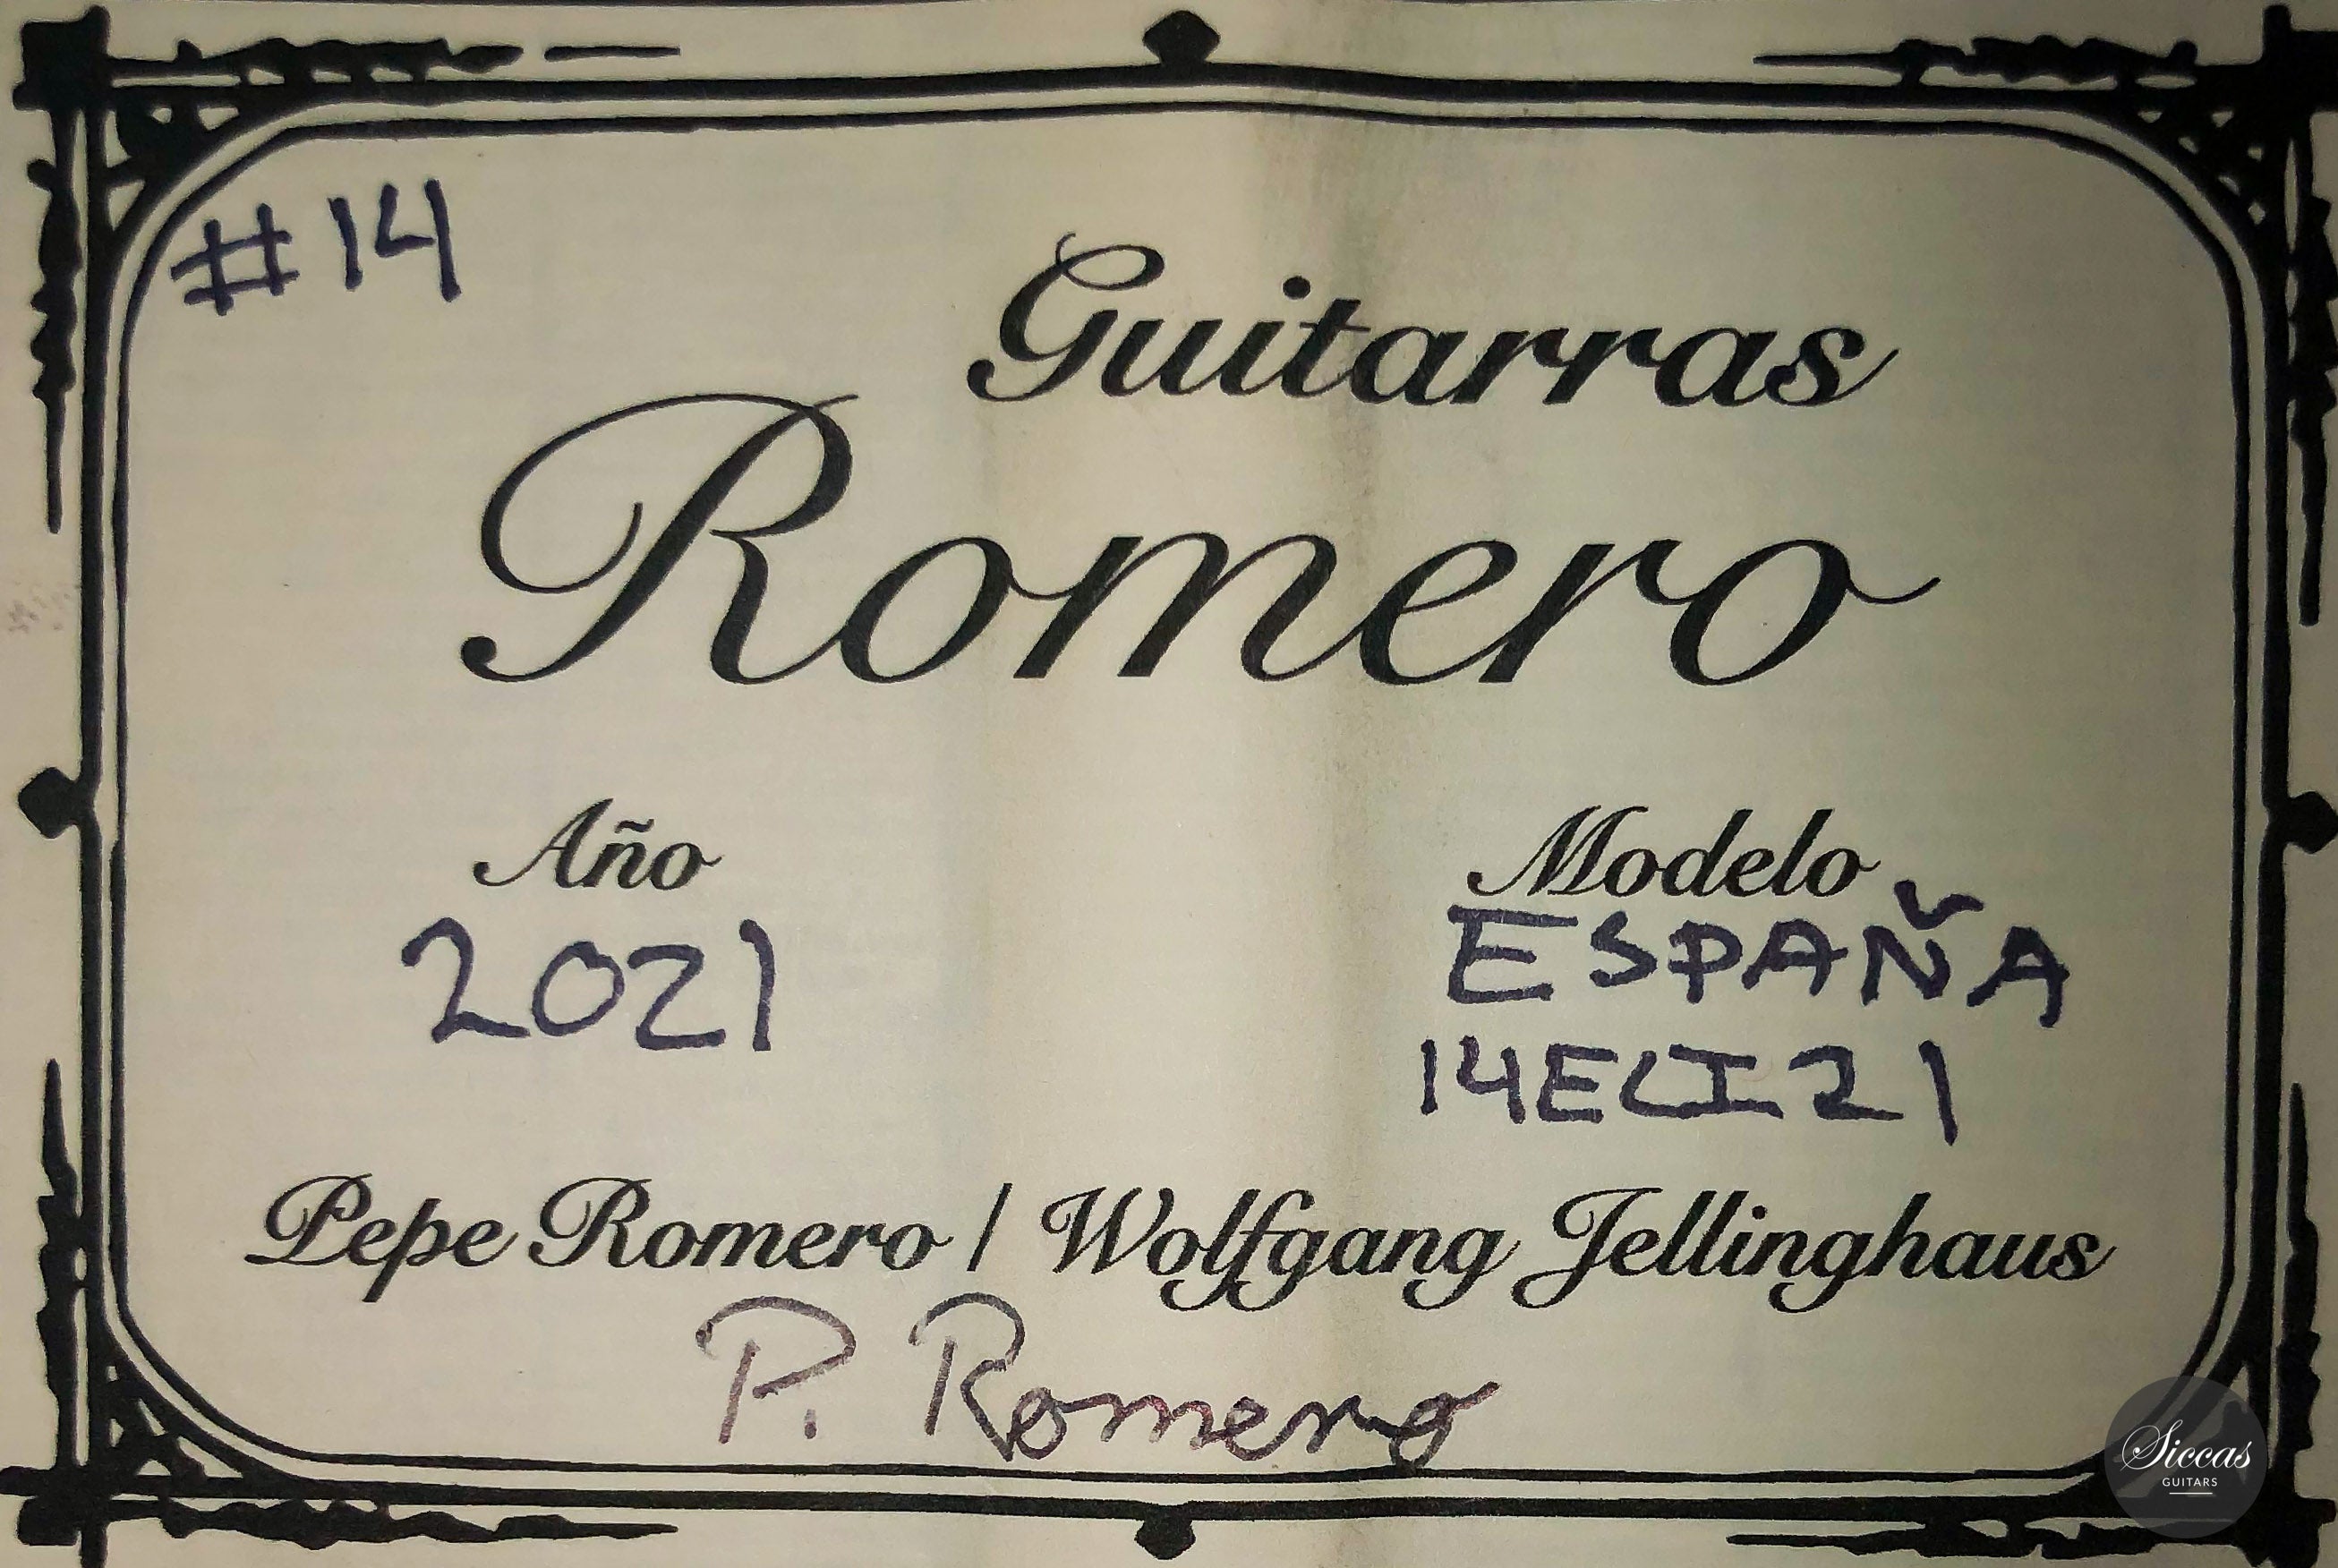 #14
Guitarras
Romero
Año
2021
Modelo
ESPAÑA
14ECI21
Pepe Romero / Wolfgang Jellinghaus
P. Romero
Siccas
GUITARS